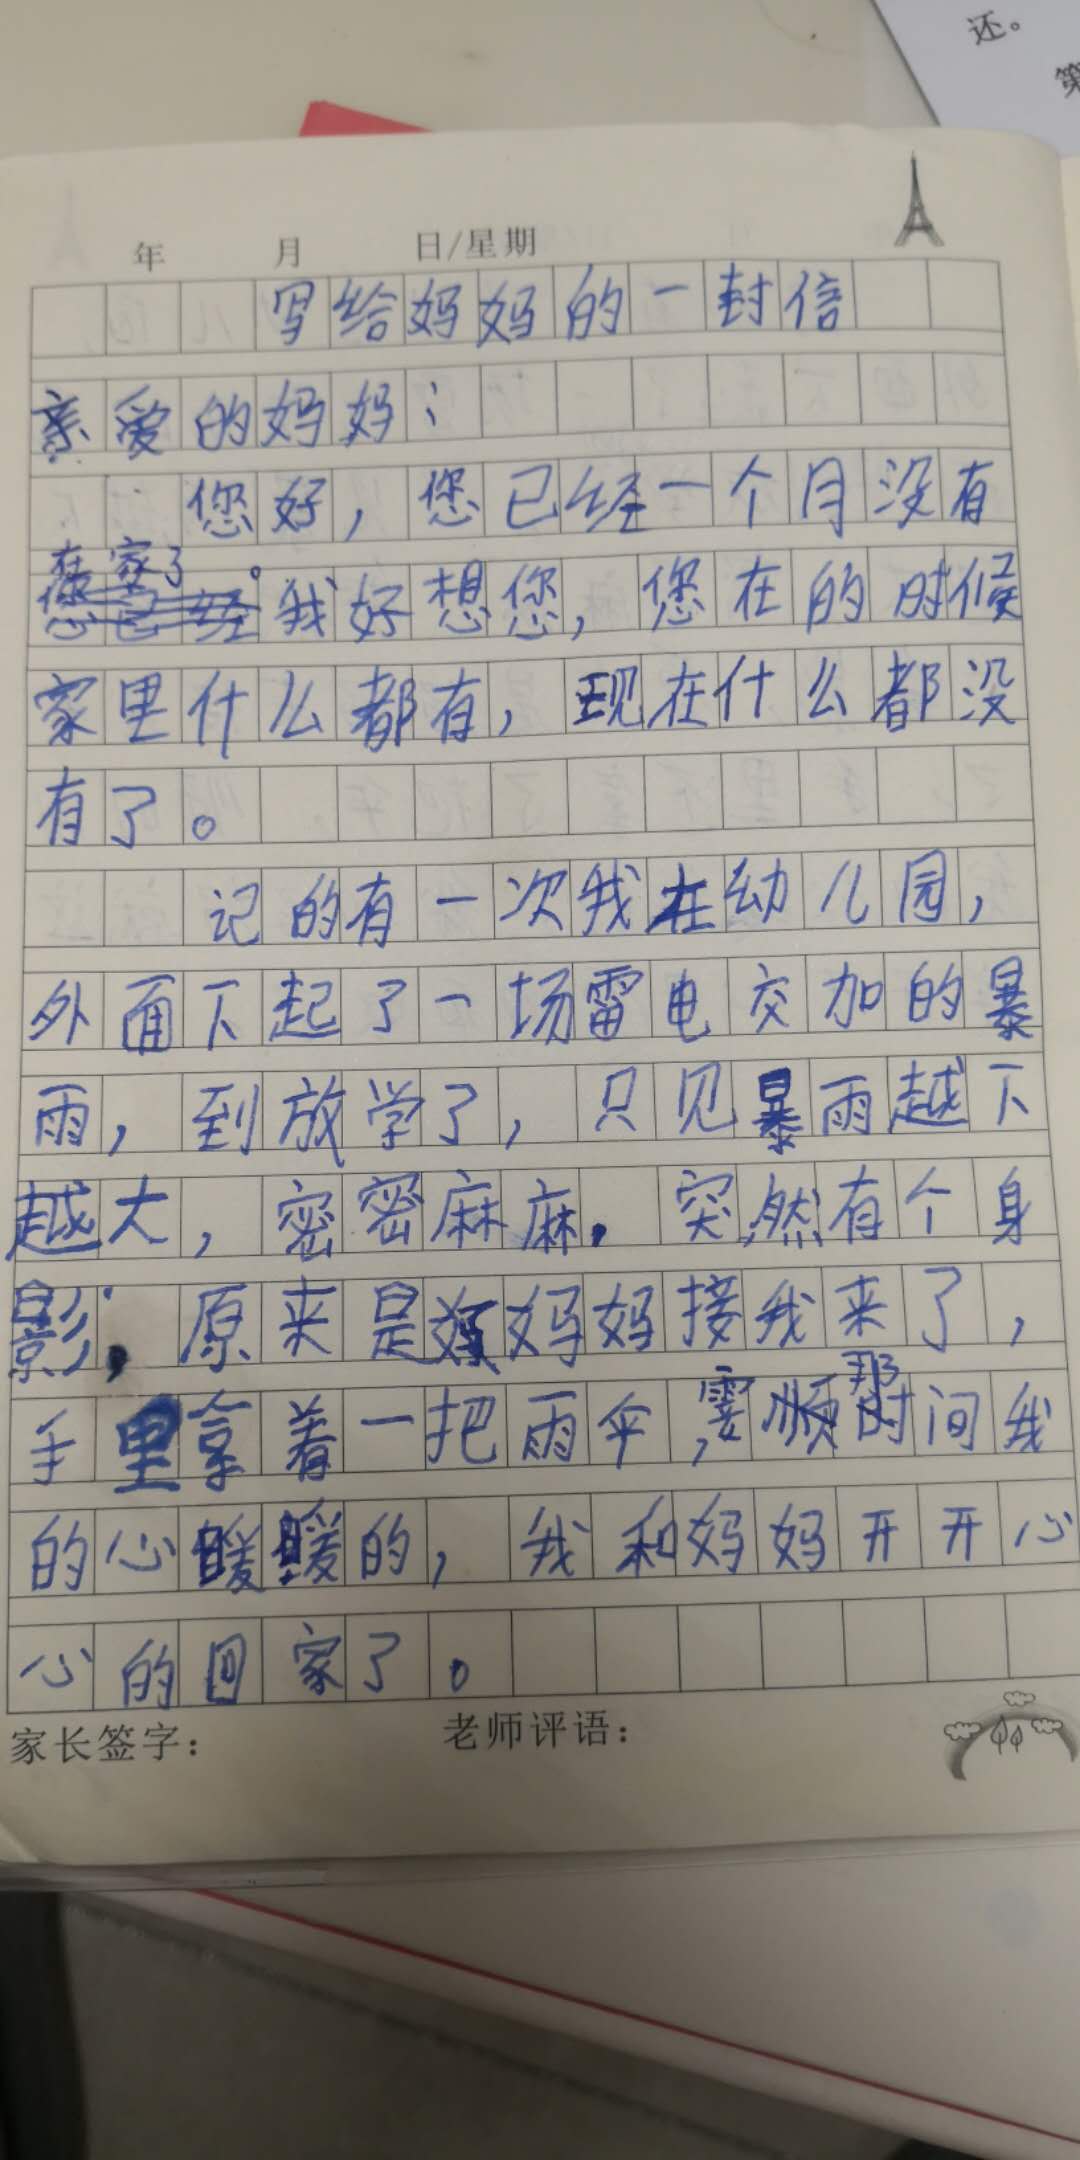 还。
第
年 月 日/星期
写给妈妈的一封信
亲爱的妈妈：
您好，您已经一个月没有
在家了。
您已经我好想您，您在的时候
家里什么都有，现在什么都没
有了。
记的有一次我在幼儿园，
外面下起了一场雷电交加的暴
雨，到放学了，只见暴雨越下
越大，密密麻麻。突然有个身
影，原来是妈妈接我来了，
那
手里拿着一把雨伞，霎顺时间我
的心暖暖的，我和妈妈开开心
心的回家了。
家长签字： 老师评语：